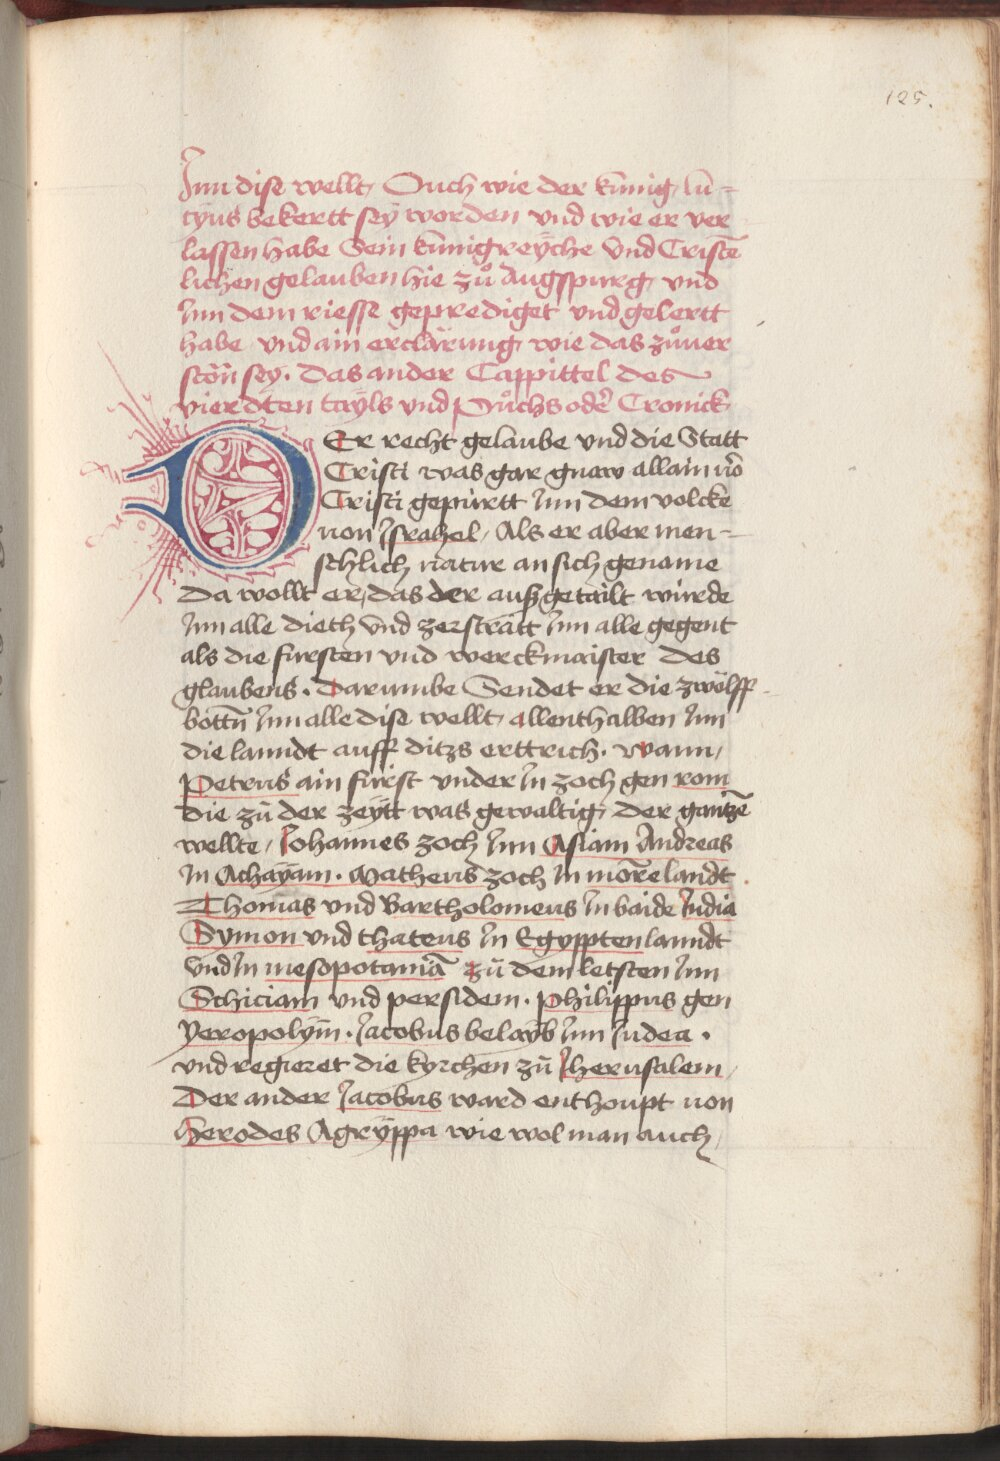 125.
Inn dise wellt, Ouch wie der kŭnig, lŭ=
cyus bekertt seÿ worden vnd wie er ver
lassen habe Sein kŭnigreÿche Vnd Cristē
lichen gelauben hie zů Augspurg, vnd
Inn dem riesse geprediget vnd gelertt
habe vnd ain erclärung wie das zůuer
ston sey. Das ander Cappittel des
vierdten taÿls vnd Půchs oder Cronick
DEr recht gelaube vnd die Statt
Cristi was gar gnaw allain vō
Cristi gepurtt Inn dem volcke
von Israhel, Als er aber men-
schlich natur an sich gename
Da wollt er, das der außgetailt wurde
Inn alle dieth vnd zersträtt Inn alle gegent
als die fursten vnd werckmaister des
glaubens. Darumbe Sendet er die zwölff
bottn̄ Inn alle dise wellt, allenthalben Inn
die lanndt auff ditzs erttrich. wann,
Petrus ain fürst vnder In zoch gen rom
die zŭ der zeÿtt was gewaltig, der gantzē
wellte, Johannes zoch Inn Asiam Andreas
In Achaÿam. Matheus zoch In mōrelandt
Thomas vnd Bartholomeus In baide India
Symon vnd thateus In Egypptenlanndt
Vnd In mesopotamiā zŭ dem letsten Inn
Schiciam vnd persidem. Philippus gen
Yeropolÿm. Jacobus belayb Inn Judea.
vnd regieret die kyrchen zŭ Jherusalem,
Der ander Jacobus ward enthoupt von
Herodes Agrÿppa wie wol man auch,